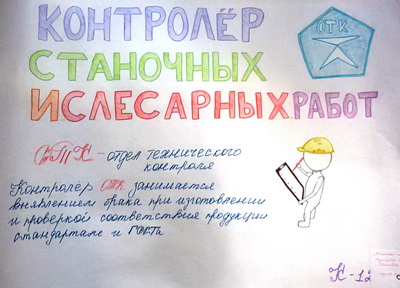 КОНТРОЛЁР
ОТК
СТАНОЧНЫХ
И СЛЕСАРНЫХ РАБОТ
ОТК - отдел технического
контроля
Контролёр ОТК занимается
выявлением брака при изготовлении
и проверкой соответствия продукции
стандартам и ГОСТа
К-12